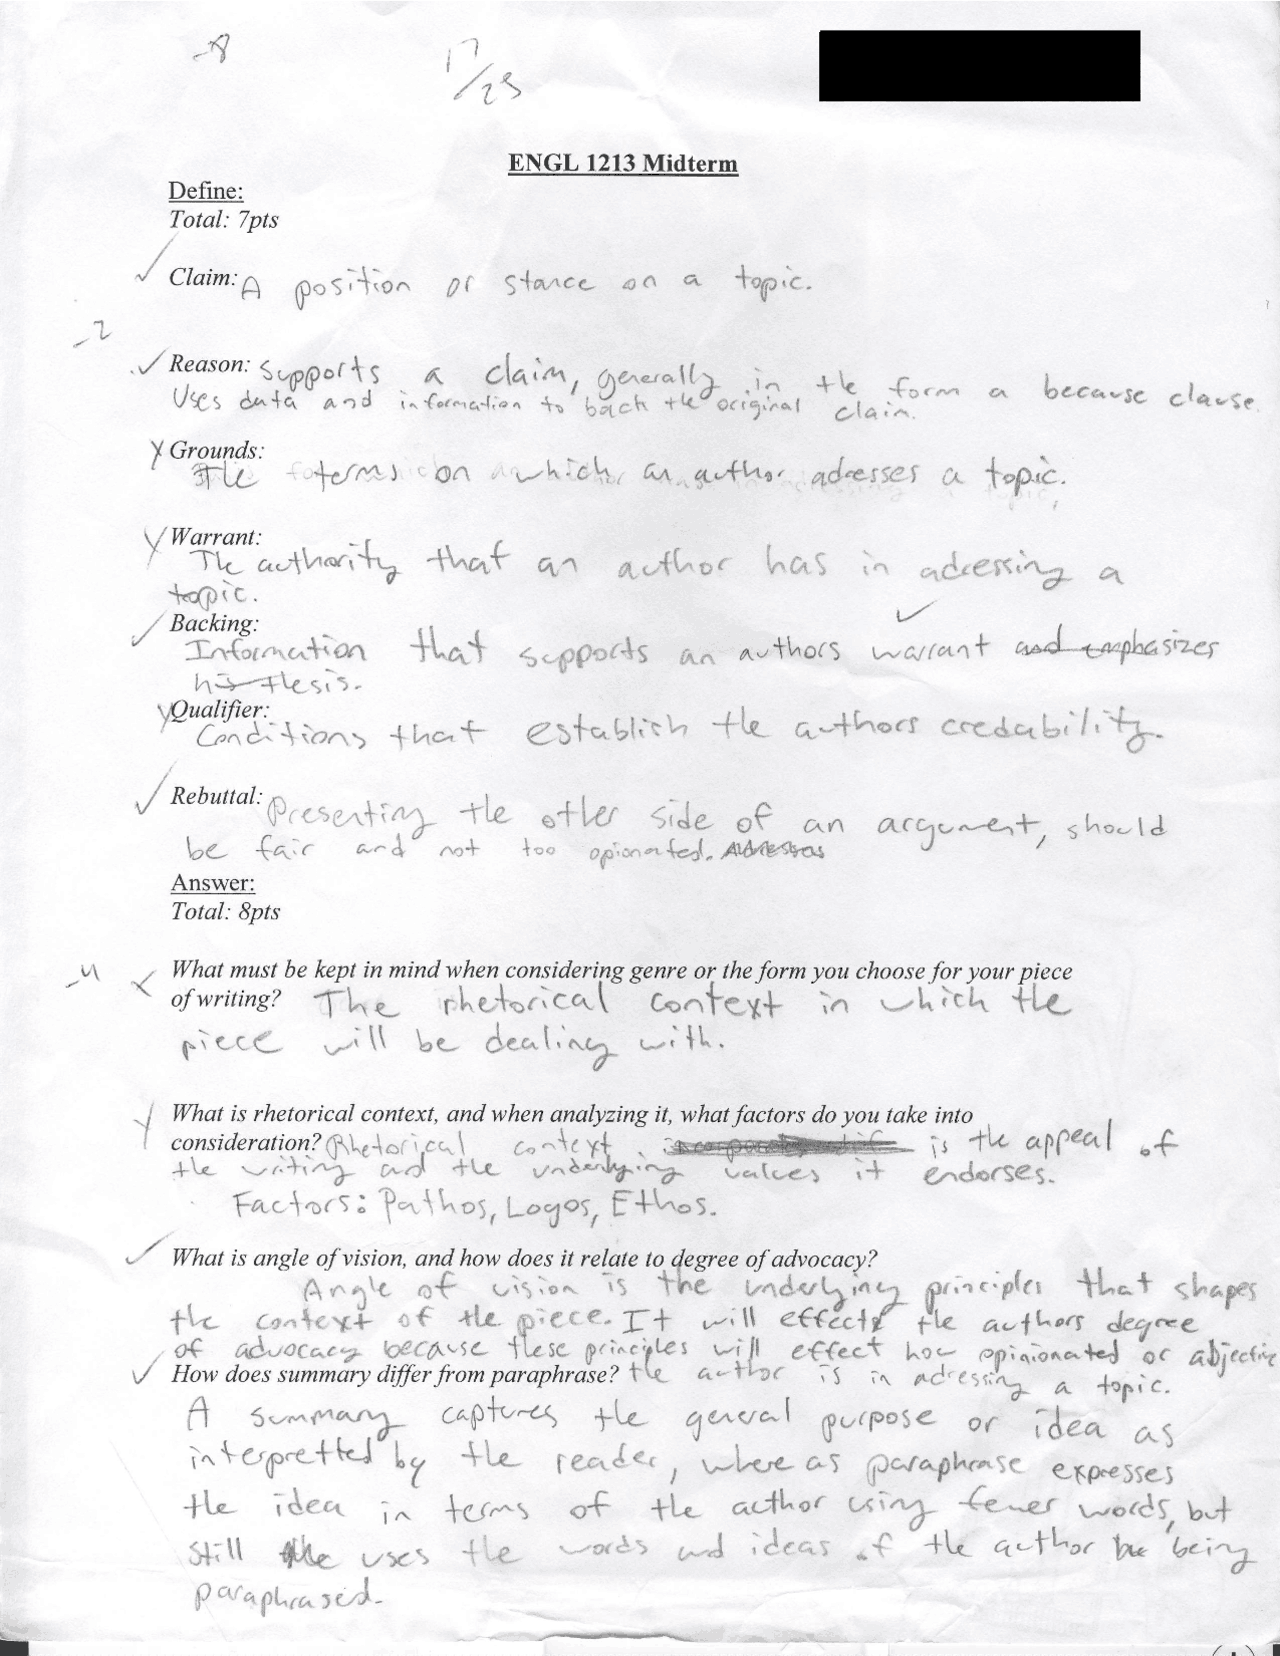 -8
17/25
ENGL 1213 Midterm
Define:
Total: 7pts
Claim: A position or stance on a topic.
-2
Reason: Supports a claim, generally in the form a because clause.
Uses data and information to back the original claim.
Grounds:
The terms on which an author adresses a topic.
Warrant:
The authority that an author has in adressing a
topic.
Backing:
Information that supports an authors warrant and emphasizes
his thesis.
Qualifier:
Conditions that establish the authors credability.
Rebuttal: Presenting the other side of an argument, should
be fair and not too opionated. Adresses
Answer:
Total: 8pts
-4
What must be kept in mind when considering genre or the form you choose for your piece
of writing? The rhetorical context in which the
piece will be dealing with.
What is rhetorical context, and when analyzing it, what factors do you take into
consideration? Rhetorical context is the appeal of
the writing and the underlying values it endorses.
Factors: Pathos, Logos, Ethos.
What is angle of vision, and how does it relate to degree of advocacy?
Angle of vision is the underlying principles that shapes
the context of the piece. It will effects the authors degree
of advocacy because these principles will effect how opinionated or abjective
How does summary differ from paraphrase? the author is in adressing a topic.
A summary captures the general purpose or idea as
interpretted by the reader, where as paraphrase expresses
the idea in terms of the author using fewer words, but
still uses the words and ideas of the author being
paraphrased.